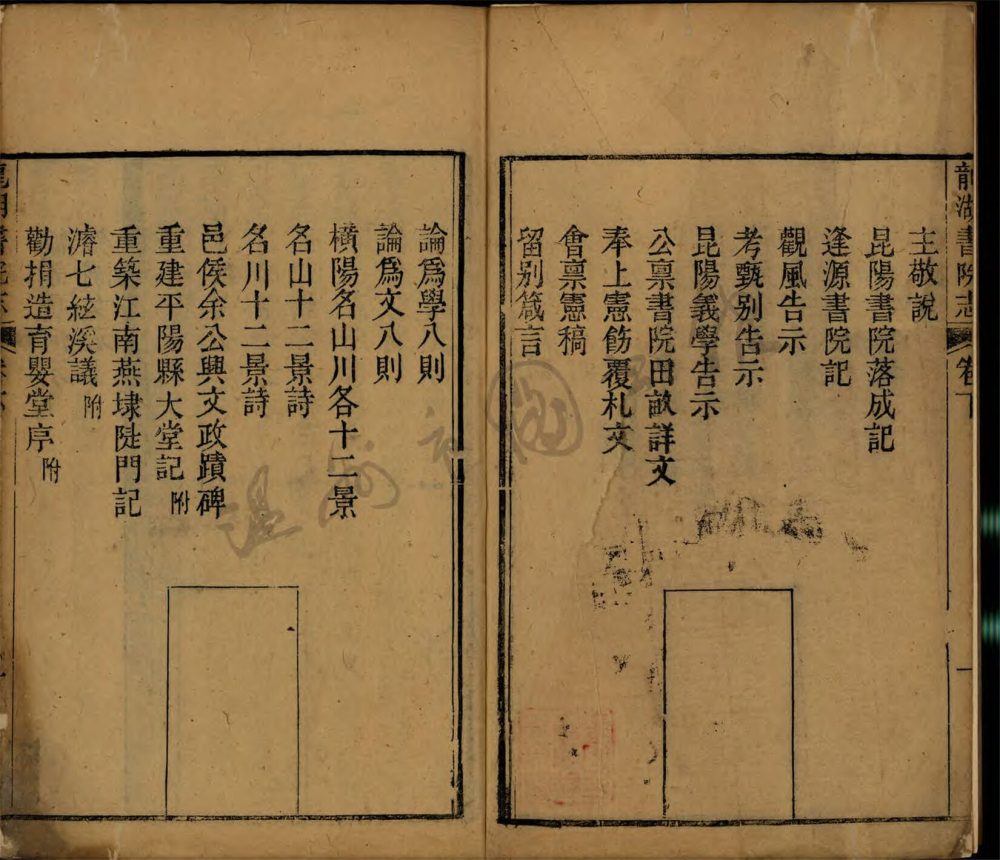 龍湖書院志 卷下
主敬說
昆陽書院落成記
逢源書院記
觀風告示
考甄别告示
昆陽義學告示
公稟書院田畝詳文
奉上憲飭覆札文
會稟憲稿
留别箴言
一
論爲學八則
論爲文八則
橫陽名山川各十二景
名山十二景詩
名川十二景詩
邑侯余公興文政蹟碑
重建平陽縣大堂記 附
重築江南燕埭陡門記
濬七絃溪議 附
勸捐造育嬰堂序 附